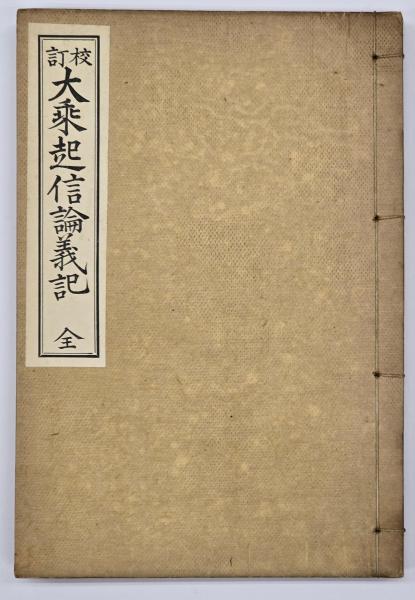 校訂
大乘起信論義記
全